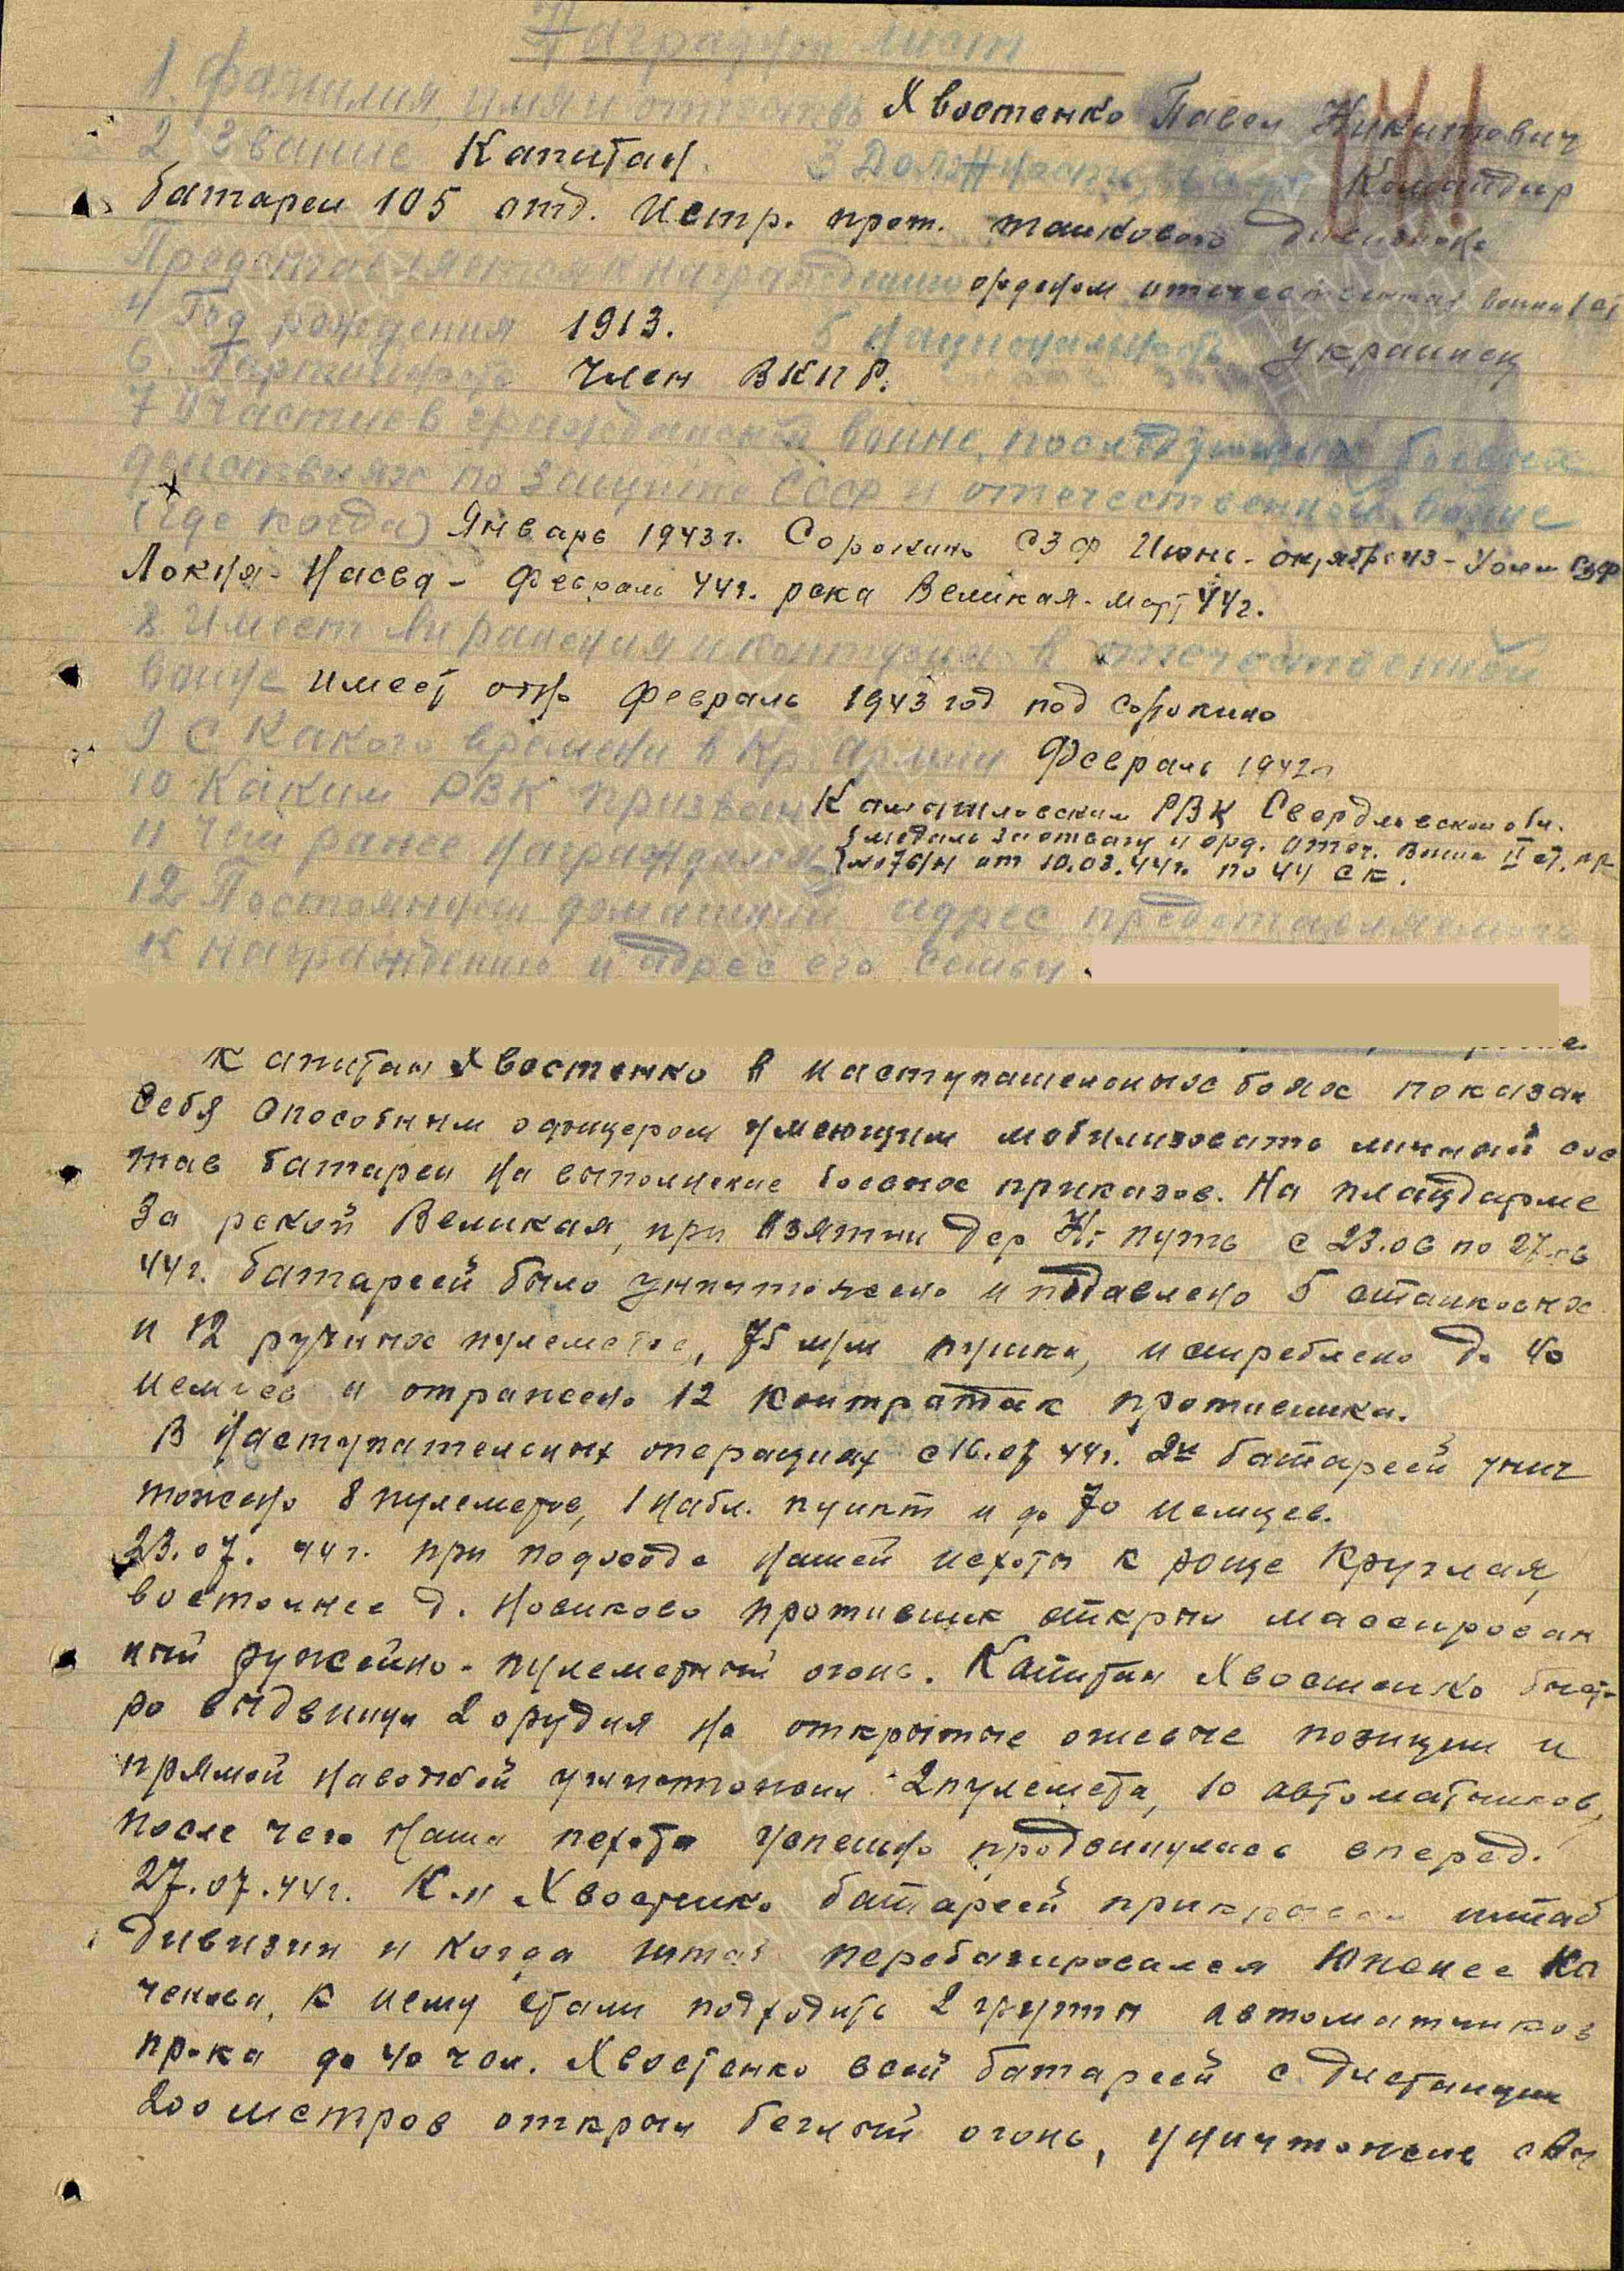 Наградной лист
1. Фамилия, имя и отчество Хвостенко Павел Никитович
2. Звание Капитан. 3 Должность, Командир
батареи 105 отд. Истр. прот. танкового дивизиона
Представляется к награждению орденом отечественная война I ст
4 Год рождения 1913. 5 Национальность украинец
6. Партийность Член ВКПб.
7 Участие в гражданской войне, последующих боевых
действиях по защите СССР и отечественной войне
(где когда) Январь 1943г. Сорокино СЗФ Июнь-октябрь 43 - СЗФ
Локня-Насва - Февраль 44г. река Великая - март 44г.
8. Имеет ли ранения и контузии в отечественной
войне имеет февраль 1943 год под Сорокино
9 С какого времени в Кр. армии Февраль 1942г
10 Каким РВК призван РВК Свердловской обл.
11 Чем ранее награждался медаль за отвагу и орд. отеч. война II ст. пр
№076/н от 10.03.44г. по 44 ск.
12 Постоянный домашний адрес представляемого
к награждению и адрес его семьи.
Капитан Хвостенко в наступательных боях показал
себя способным офицером умеющим мобилизовать личный сос
тав батареи на выполнение боевых приказов. На плацдарме
за рекой Великая, при взятии дер Н. путь с 23.06 по 27.06
44г. батареей было уничтожено и подавлено 5 станковых
и 12 ручных пулеметов, 75 м/м пушка, истреблено до 40
немцев и отражено 12 контратак противника.
В наступательных операциях с 16.07 44г. 2й батареей унич
тожено 8 пулеметов, 1 набл. пункт и до 70 немцев.
23.07. 44г. при подходе нашей пехоты к роще Круглая,
восточнее д. Новиково противник открыл массирован
ный ружейно-пулеметный огонь. Капитан Хвостенко быст-
ро выдвинул 2 орудия на открытые огневые позиции и
прямой наводкой уничтожил 2 пулемета, 10 автоматчиков,
после чего наша пехота успешно продвинулась вперед.
27.07.44г. К-н Хвостенко батареей прикрывал штаб
дивизии и когда штаб перебазировался южнее Ка
ченова, к нему стали подходить 2 группы автоматчиков
пр-ка до 40 чел. Хвостенко всей батареей с дистанции
200 метров открыл беглый огонь, уничтожив свы